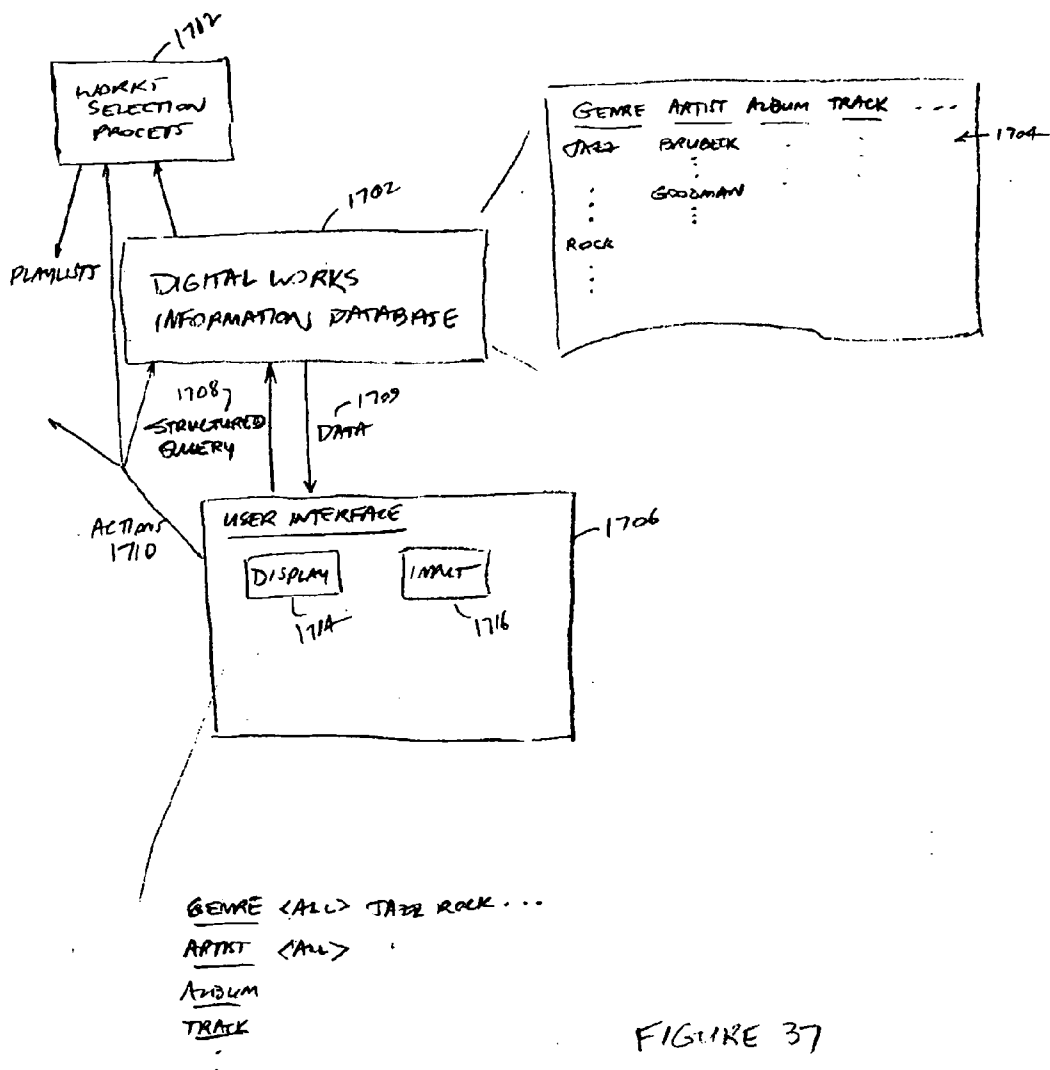 1712
WORKS
SELECTION
PROCESS
GENRE ARTIST ALBUM TRACK ...
1704
JAZZ BRUBECK
GOODMAN
ROCK
1702
PLAYLISTS
DIGITAL WORKS
INFORMATION DATABASE
1708
STRUCTURED
QUERY
1709
DATA
ACTIONS
1710
USER INTERFACE
1706
DISPLAY INPUT
1714 1716
GENRE <ALL> JAZZ ROCK ...
ARTIST <ALL>
ALBUM
TRACK
FIGURE 37